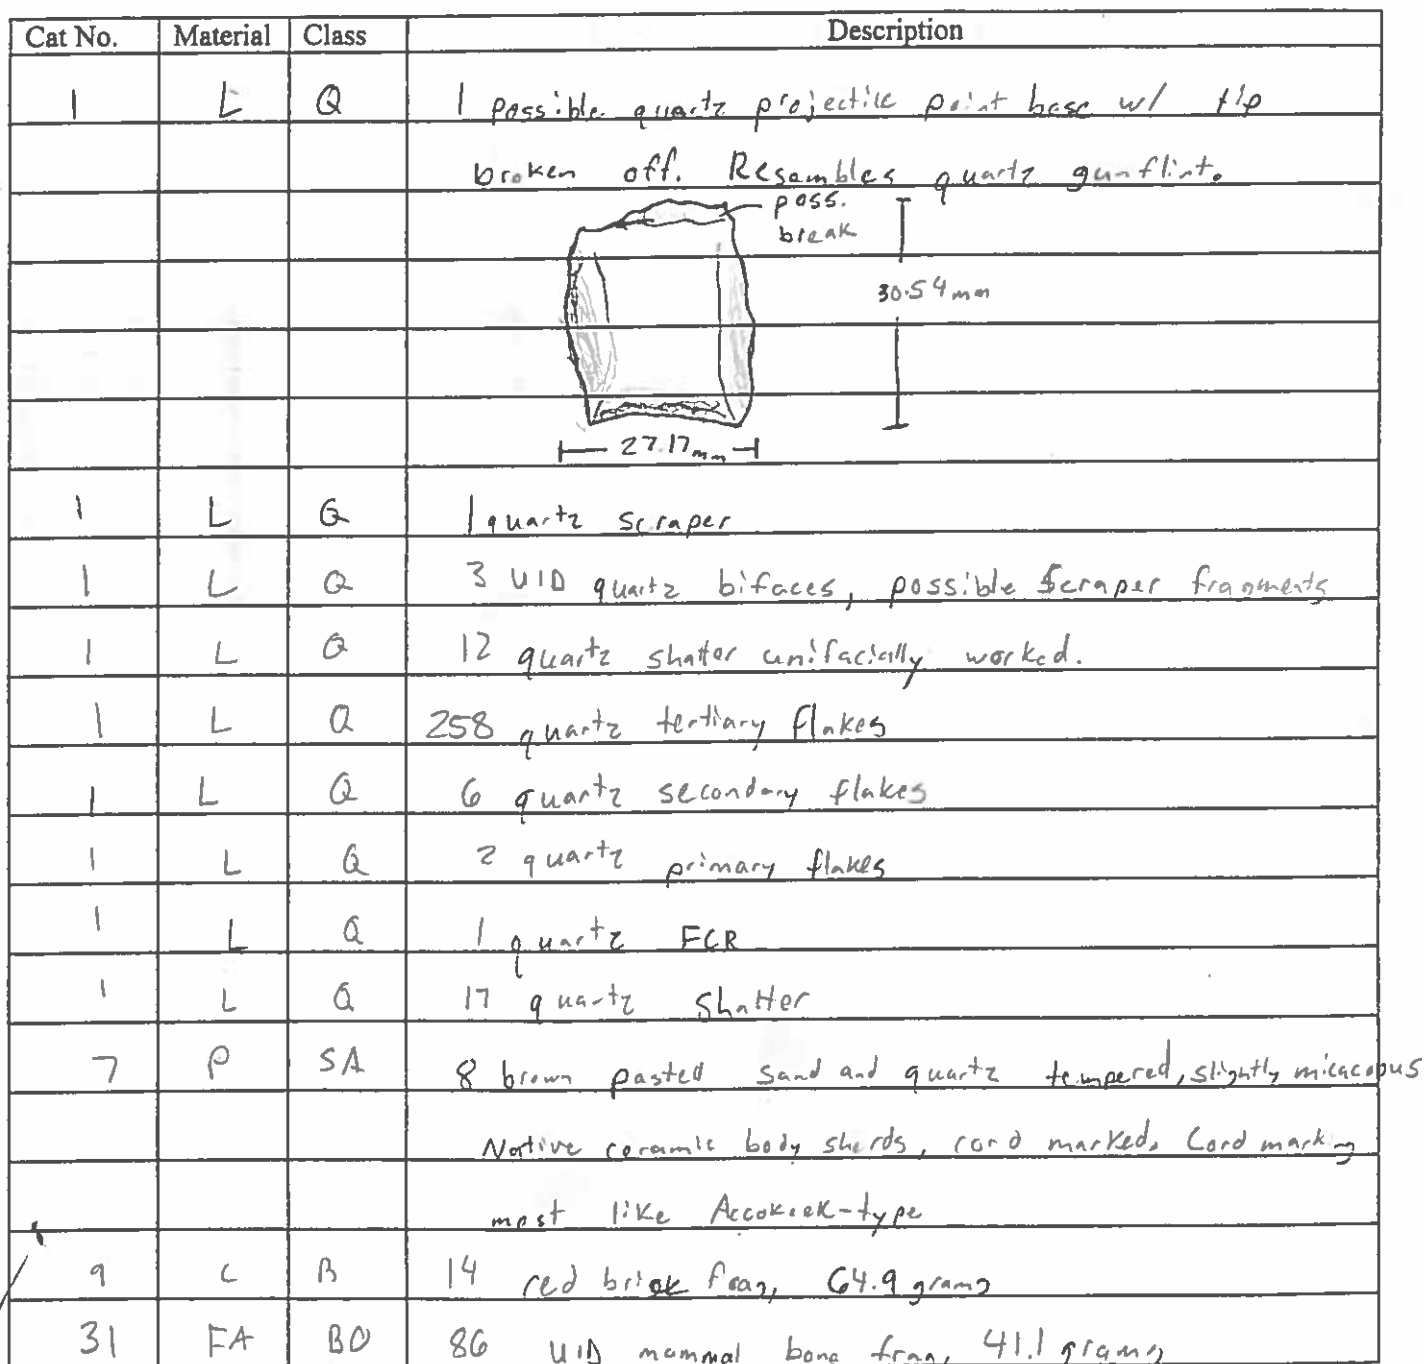 Cat No. Material Class Description
1 L Q 1 possible quartz projectile point base w/ tip
broken off. Resambles quartz gunflint.
poss.
break
30.54mm
27.17mm
1 L Q 1 quartz scraper
1 L Q 3 UID quartz bifaces, possible Scraper fragments
1 L Q 12 quartz shatter unifacially worked.
1 L Q 258 quartz tertiary flakes
1 L Q 6 quartz secondary flakes
1 L Q 2 quartz primary flakes
1 L Q 1 quartz FCR
1 L Q 17 quartz shatter
7 P SA 8 brown pasted sand and quartz tempered, slightly micacous
Native ceramic body sherds, cord marked. Cord marking
most like Accokeek-type
9 C B 14 red brick frag, 64.9 grams
31 FA BO 86 UID mammal bone frag, 41.1 grams